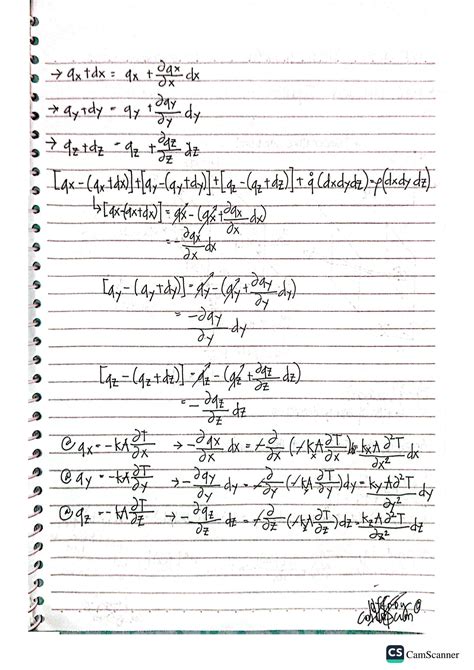 → qx+dx = qx + ∂qx/∂x dx
→ qy+dy = qy + ∂qy/∂y dy
→ qz+dz = qz + ∂qz/∂z dz
[qx-(qx+dx)]+[qy-(qy+dy)]+[qz-(qz+dz)]+q̇(dxdydz)=ρ(dxdydz)
↳[qx-(qx+dx)] = qx-(qx+∂qx/∂x dx)
= -∂qx/∂x dx
[qy-(qy+dy)] = qy-(qy+∂qy/∂y dy)
= -∂qy/∂y dy
[qz-(qz+dz)] = qz-(qz+∂qz/∂z dz)
= -∂qz/∂z dz
@ qx = -kA ∂T/∂x → -∂qx/∂x dx = -∂/∂x (-kxA ∂T/∂x)dx = kxA∂²T/∂x² dx
@ qy = -kA ∂T/∂y → -∂qy/∂y dy = -∂/∂y (-kyA ∂T/∂y)dy = kyA∂²T/∂y² dy
@ qz = -kA ∂T/∂z → -∂qz/∂z dz = -∂/∂z (-kzA ∂T/∂z)dz = kzA∂²T/∂z² dz
CS CamScanner